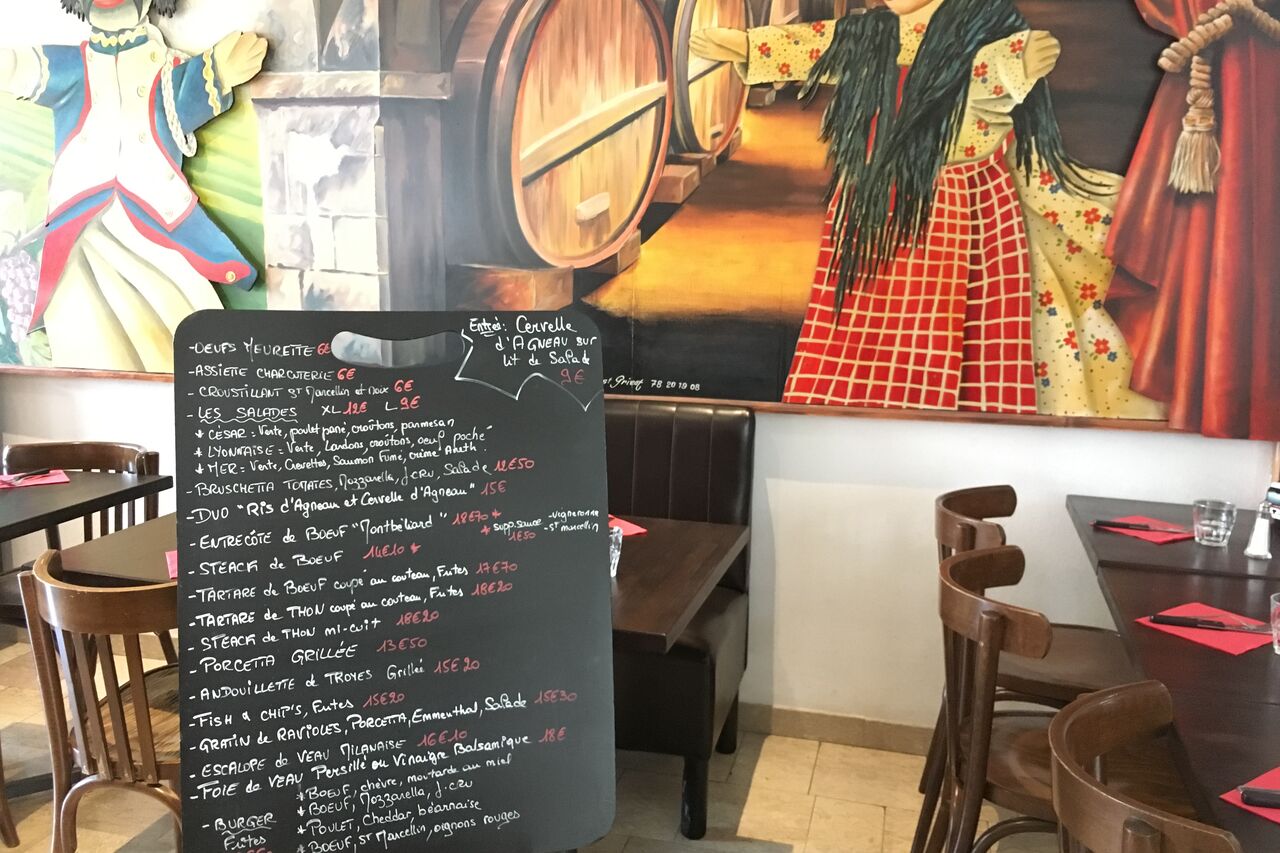 -OEUFS MEURETTE 6€
-ASSIETTE CHARCUTERIE 6€
-CROUSTILLANT ST Marcellin et Noix 6€
-LES SALADES XL 12€ L 9€
* CÉSAR : Verte, poulet pané, croûtons, parmesan
* LYONNAISE : Verte, Lardons, croûtons, oeuf poché
* MER : Verte, Crevettes, Saumon Fumé, crème Aneth.
-BRUSCHETTA TOMATES, Mozzarella, J.CRU, Salade 12€50
-DUO "Ris d'Agneau et Cervelle d'Agneau" 15€
-ENTRECÔTE de BOEUF "Montbéliard" 18€70 *
-STEACK de BOEUF 14€10 *
-TARTARE de BOEUF coupé au couteau, Frites 17€70
-TARTARE de THON coupé au couteau, Frites 18€20
-STEACK de THON mi-cuit 18€20
-PORCETTA GRILLÉE 13€50
-ANDOUILLETTE de TROYES Grillée 15€20
-FISH & CHIP'S, Frites 15€20
-GRATIN de RAVIOLES, PORCETTA, Emmenthal, Salade 15€30
-ESCALOPE de VEAU MILANAISE 16€10
-FOIE de VEAU Persillé ou Vinaigre Balsamique 18€
-BURGER
Frites
* BOEUF, chèvre, moutarde au miel
* BOEUF, Mozzarella, J.CRU
* POULET, Cheddar, béarnaise
* BOEUF, ST Marcellin, oignons rouges
Entrée : Cervelle
d'AGNEAU sur
lit de Salade
9€
* supp. sauce - vigneronne
1€50 - ST marcellin
78 20 19 08